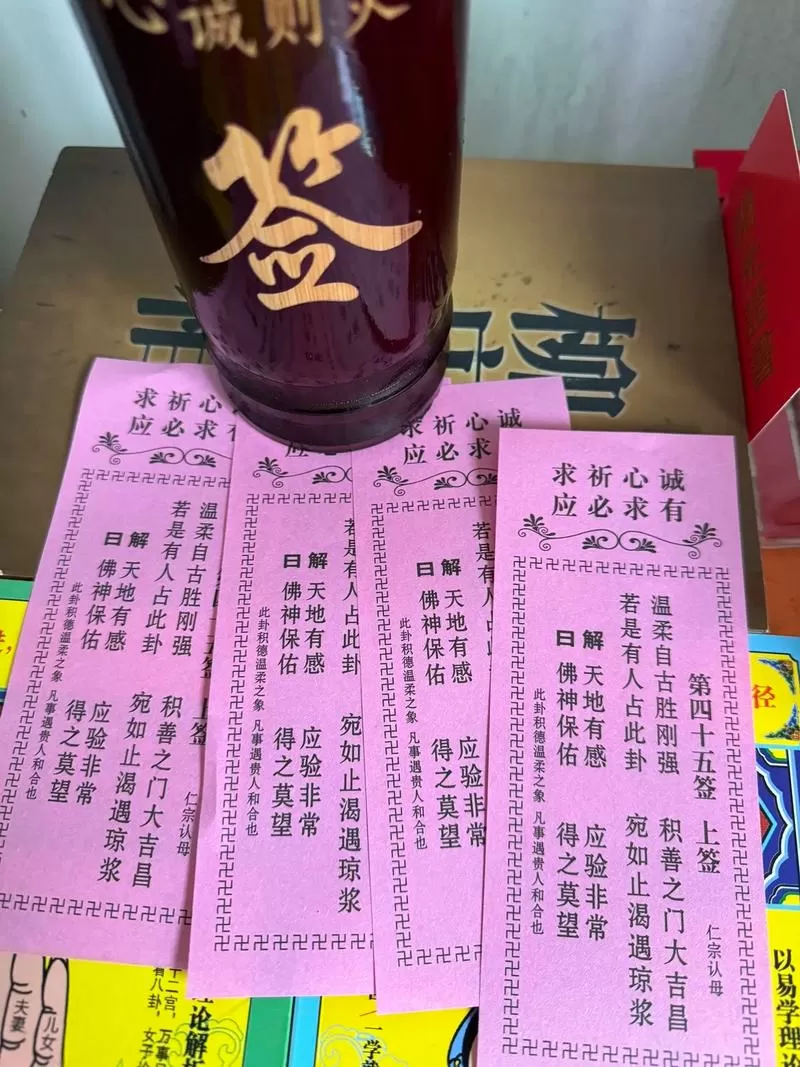 心诚则
签
柳
诚心祈求
有求必应
第四十五签 上签
仁宗认母
温柔自古胜刚强 积善之门大吉昌
若是有人占此卦 宛如止渴遇琼浆
解曰
天地有感 应验非常
佛神保佑 得之莫望
此卦积德温柔之象 凡事遇贵人和合也
诚心祈求
求必应
若是有人
解曰
天地有感 应验非常
佛神保佑 得之莫望
此卦积德温柔之象 凡事遇贵人和合也
应
若是有人占此卦 宛如止渴遇琼浆
解曰
天地有感 应验非常
佛神保佑 得之莫望
此卦积德温柔之象 凡事遇贵人和合也
心祈求
求必应
签 上签
仁宗认母
温柔自古胜刚强 积善之门大吉昌
若是有人占此卦 宛如止渴遇琼浆
解曰
天地有感 应验非常
佛神保佑 得之莫望
此卦积德温柔之象 凡事遇贵人和合也
径
夫妻
儿女
十二宫，万事
看八卦，女子
理论解析
一学
以易学理论